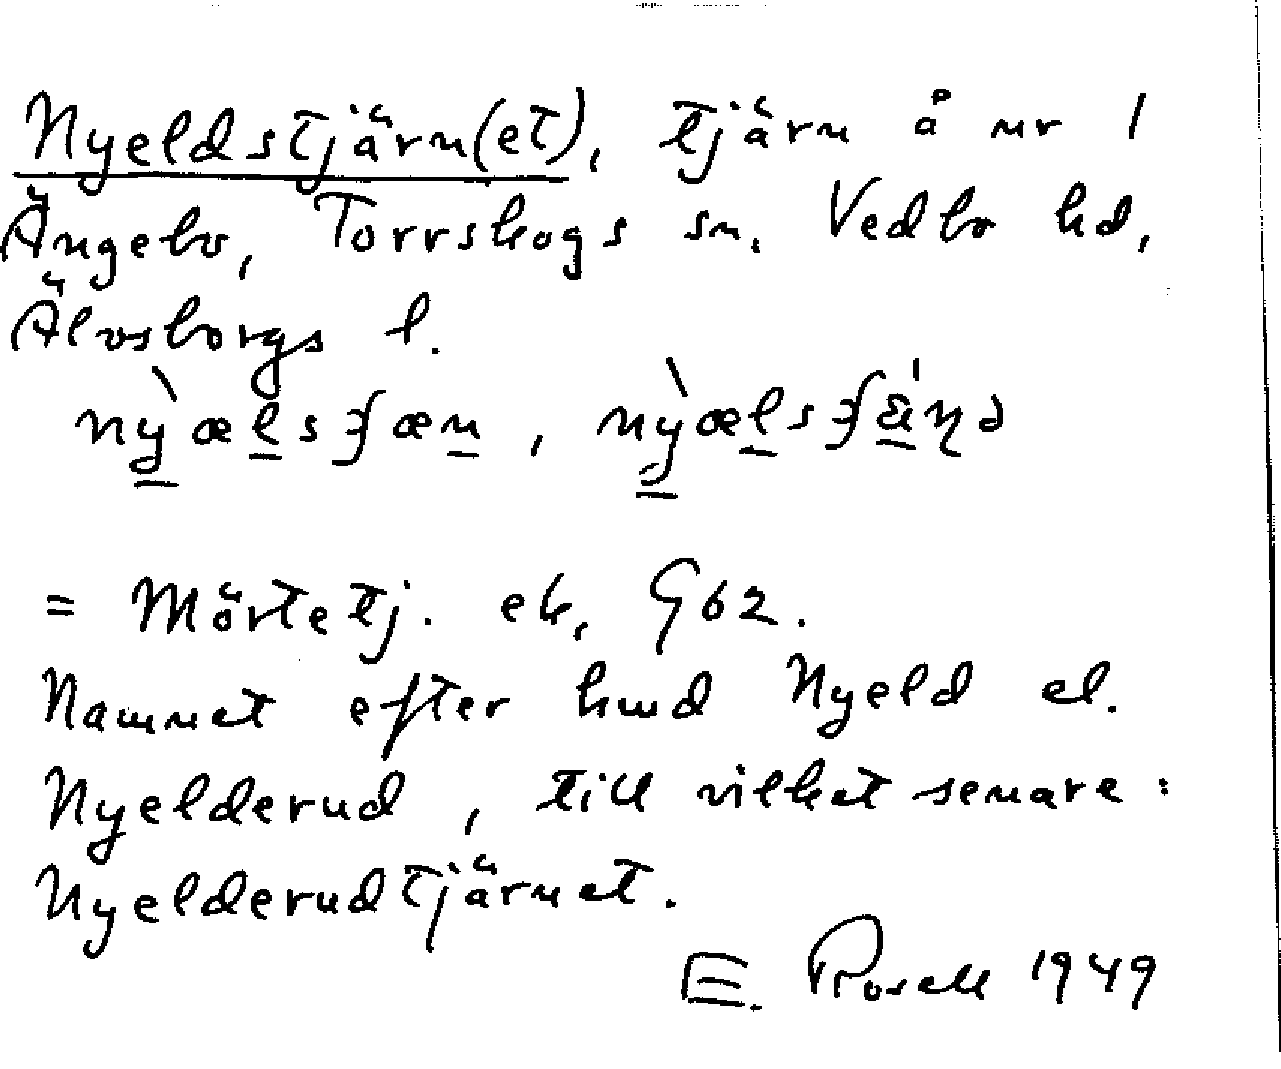 Nyeldstjärn(et), tjärn å nr 1
Ängebo, Torrskogs sn, Vedbo hd,
Älvsborgs l.
nỳælsʒfæn, nỳælsʒfǽŋə
= Mörtetj. ek. G62.
Namnet efter hmd Nyeld el.
Nyelderud, till vilket senare:
Nyelderudtjärnet.
E. Rosell 1949